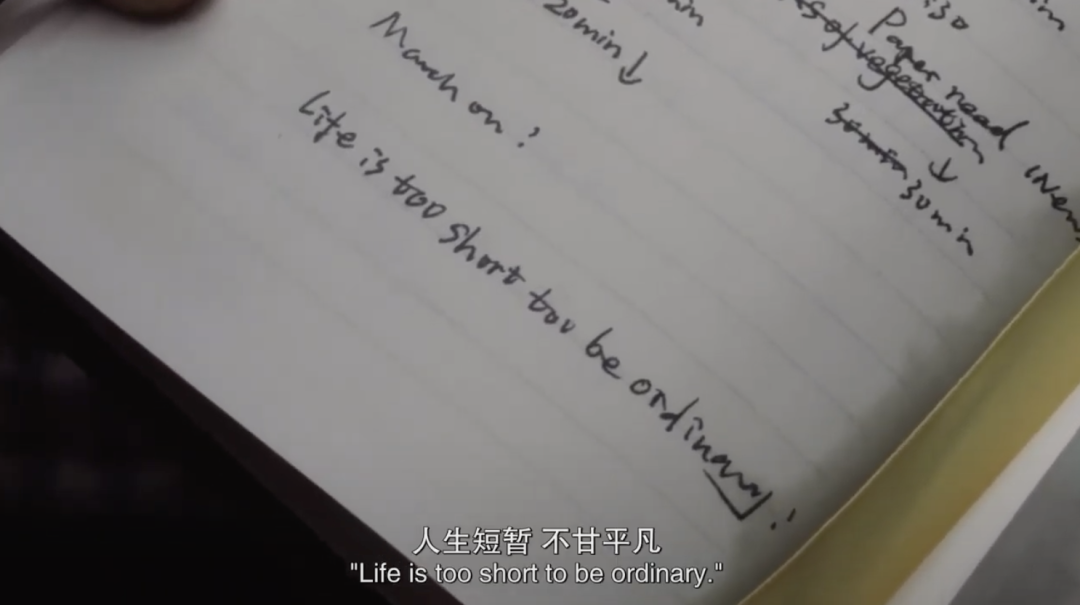 min
20min↓
March on!
Life is too short too be ordinary!
:30
Paper need
of vegetation
30min 30min
人生短暂 不甘平凡
"Life is too short to be ordinary."